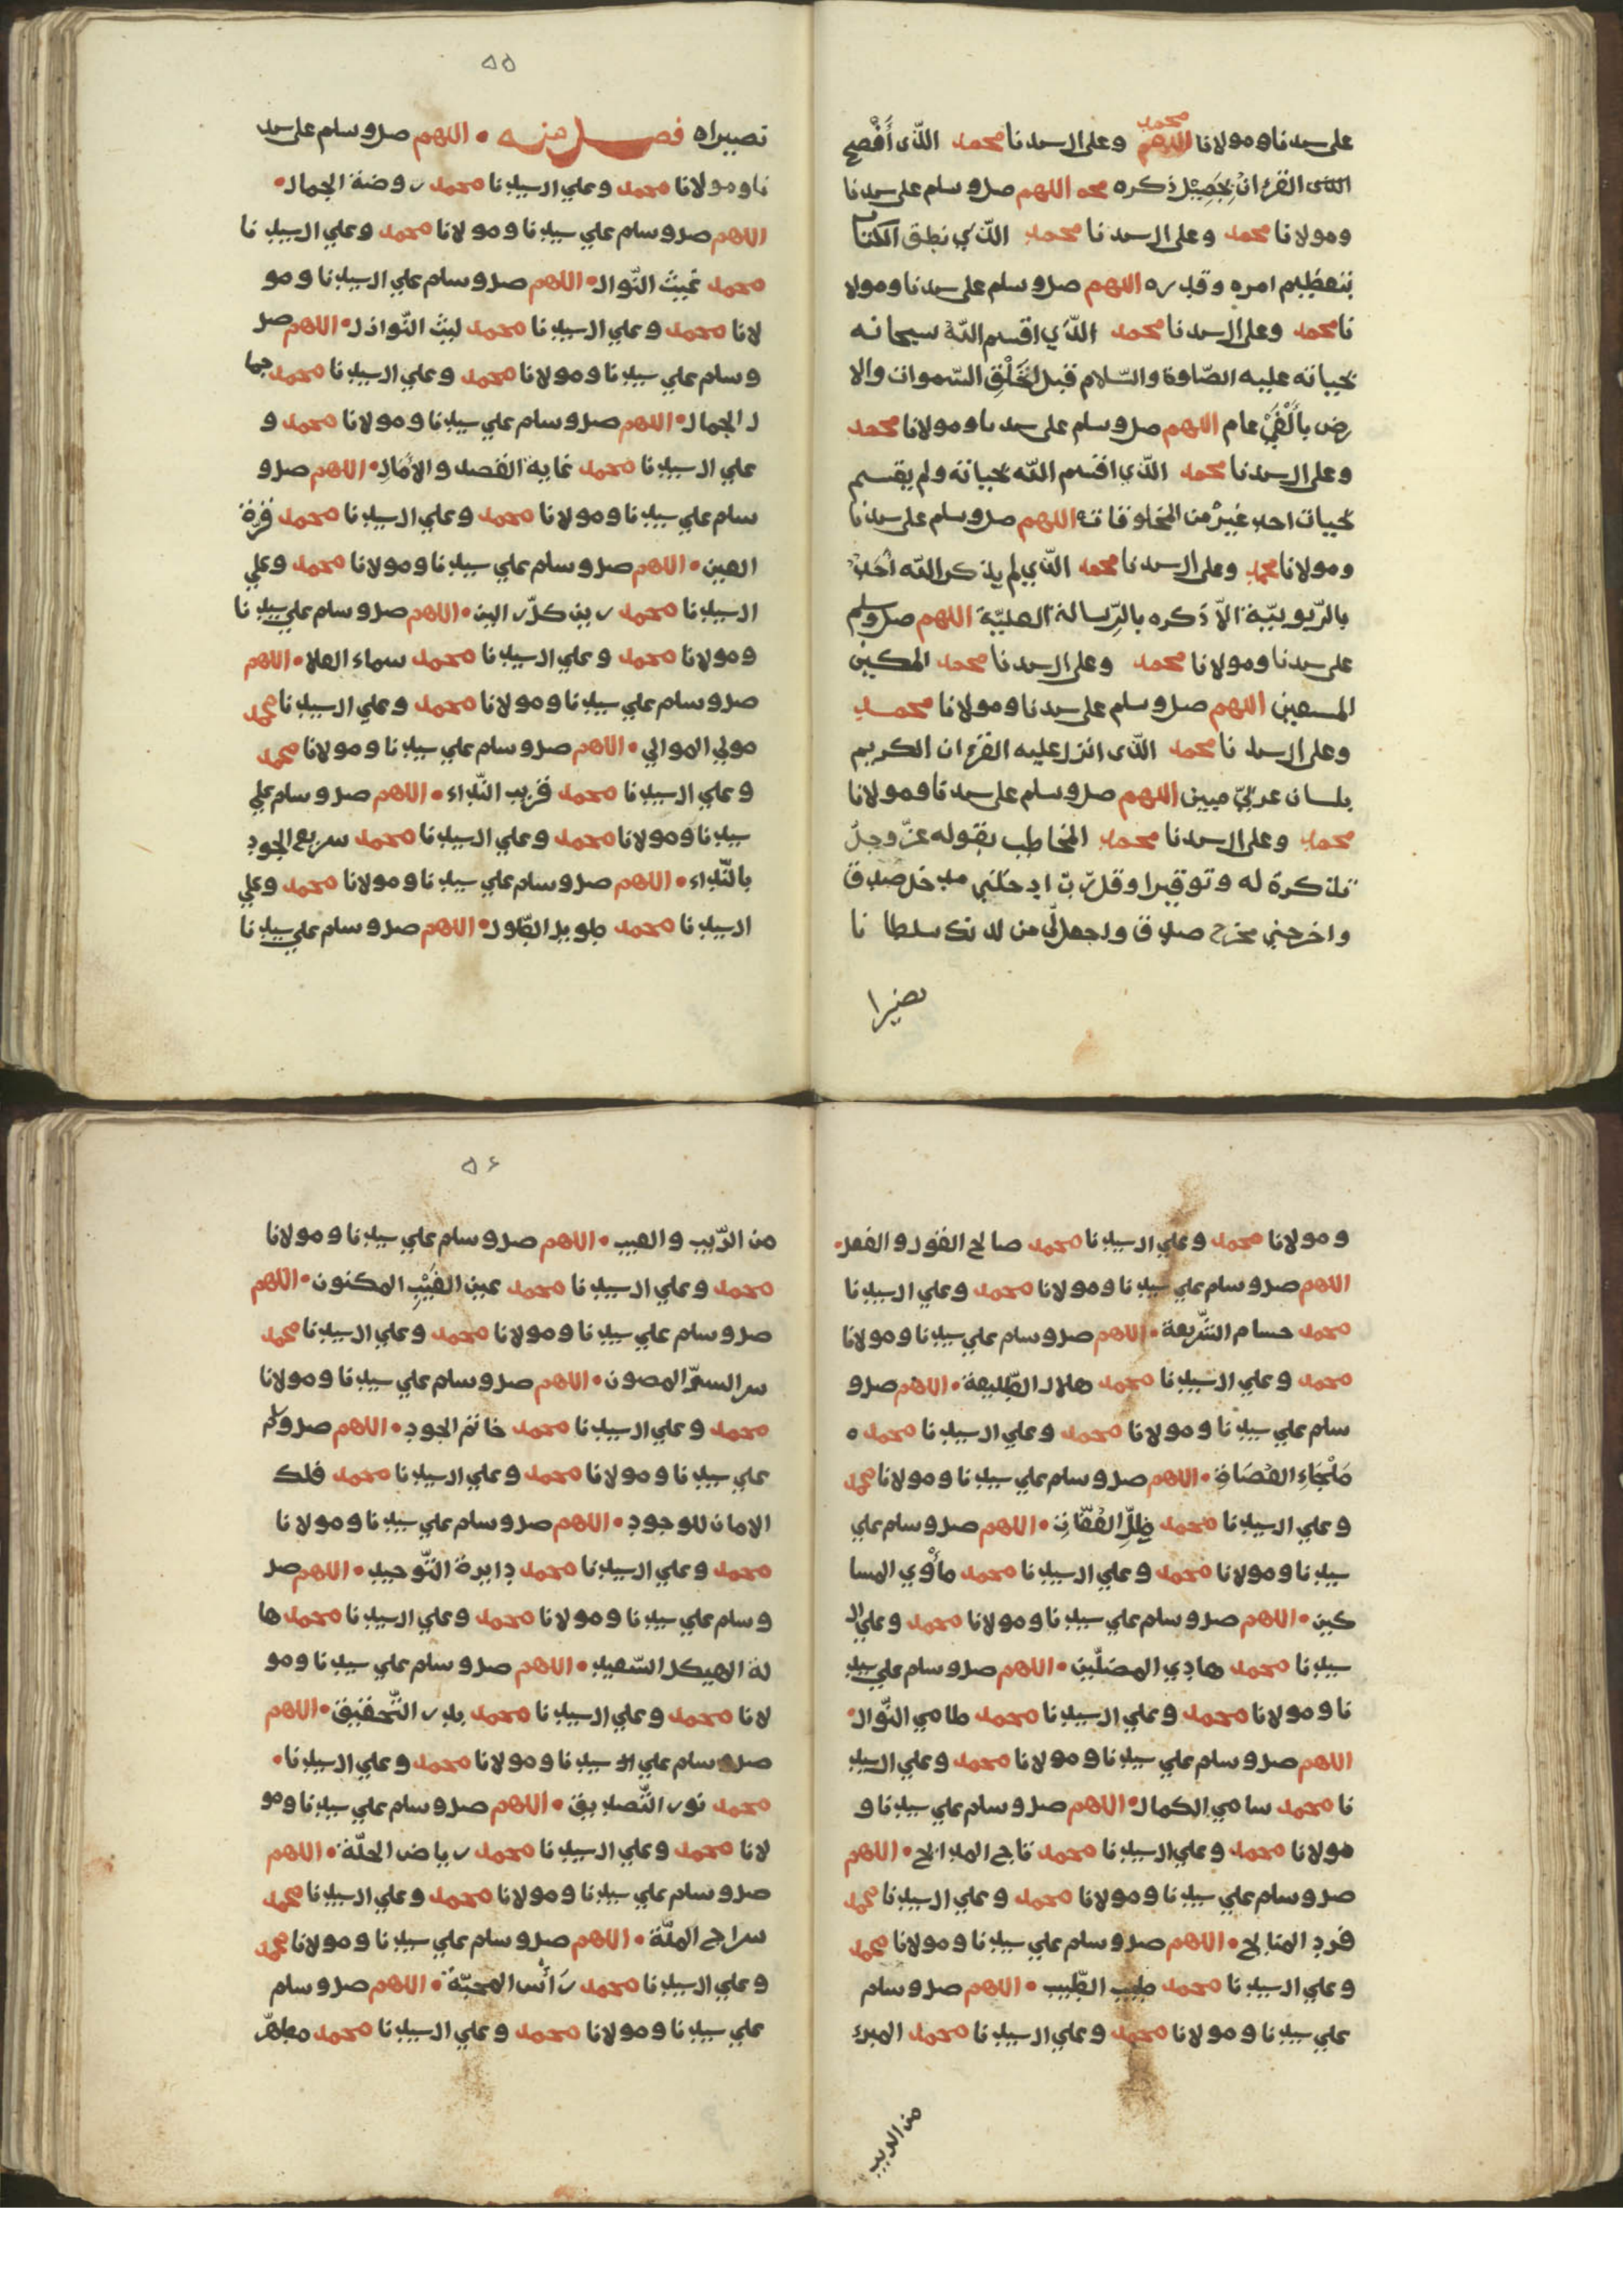 على سيدنا ومولانا محمد اللهم وعلى ال سيدنا محمد الذى أفصح
الذى القرءان بجميل ذكره محمد اللهم صل وسلم على سيدنا
ومولانا محمد وعلى ال سيدنا محمد الذي نطق الكتاب
بتعظيم امره وقدره اللهم صل وسلم على سيدنا ومولا
نا محمد وعلى ال سيدنا محمد الذي اقسم الله سبحانه
بحياته عليه الصلوة والسلام قبل لخلق السموات والا
رض بألفي عام اللهم صل وسلم على سيدنا ومولانا محمد
وعلى ال سيدنا محمد الذي اقسم الله بحياته ولم يقسم
بحيات احد غير من المخلوقاته اللهم صل وسلم على سيدنا
ومولانا محمد وعلى ال سيدنا محمد الذي لم يذكر الله احد
بالربوبية الا ذكره بالرسالة العلية اللهم صل وسلم
على سيدنا ومولانا محمد وعلى ال سيدنا محمد المكين
المستعين اللهم صل وسلم على سيدنا ومولانا محمد
وعلى ال سيد نا محمد الذى انزل عليه القرءان الكريم
بلسان عربي مبين اللهم صل وسلم على سيدنا ومولانا
محمد وعلى ال سيدنا محمد المخاطب بقوله عز وجل
تذكرة له وتوقيرا وقل رب ادخلني مدخل صدق
واخرجني مخرج صدق واجعل لي من لدنك سلطا نا
نصيرا
٥٥
نصيراه فصل منه • اللهم صل وسلم على سيد
نا ومولانا محمد وعلي ال سيدنا محمد روضة الجمال•
اللهم صل وسلم علي سيدنا ومولانا محمد وعلي ال سيد نا
محمد غيث النوال• اللهم صل وسلم علي ال سيدنا ومو
لانا محمد وعلي ال سيدنا محمد ليث النوازل• اللهم صل
وسلم علي سيدنا ومولانا محمد وعلي ال سيدنا محمد جما
ل الجمال• اللهم صل وسلم علي سيدنا ومولانا محمد و
علي ال سيدنا محمد غاية القصد والامال• اللهم صل و
سلم علي سيدنا ومولانا محمد وعلي ال سيدنا محمد قرة
العين• اللهم صل وسلم علي سيدنا ومولانا محمد وعلي
ال سيدنا محمد رين كل الين• اللهم صل وسلم علي سيد نا
ومولانا محمد وعلي ال سيدنا محمد سماء العلا• اللهم
صل وسلم علي سيدنا ومولانا محمد وعلي ال سيدنا محمد
مولي الموالي• اللهم صل وسلم علي سيدنا ومولانا محمد
وعلي ال سيدنا محمد قريب النداء• اللهم صل وسلم علي
سيدنا ومولانا محمد وعلي ال سيدنا محمد سريع الجود
بالنداء• اللهم صل وسلم علي سيدنا ومولانا محمد وعلي
ال سيدنا محمد طويل الطول• اللهم صل وسلم علي سيد نا
ومولانا محمد وعلي ال سيدنا محمد صالح القول والفعل•
اللهم صل وسلم علي سيدنا ومولانا محمد وعلي ال سيدنا
محمد حسام الشريعة• اللهم صل وسلم علي سيدنا ومولانا
محمد وعلي ال سيدنا محمد هلال الطليعة• اللهم صل و
سلم علي سيدنا ومولانا محمد وعلي ال سيدنا محمد ه
ملجاء القصاد• اللهم صل وسلم علي سيدنا ومولانا محمد
وعلي ال سيدنا محمد ظل الفقاد• اللهم صل وسلم علي
سيدنا ومولانا محمد وعلي ال سيدنا محمد مأوي المسا
كين• اللهم صل وسلم علي سيدنا ومولانا محمد وعلي ال
سيدنا محمد هادي المضلين• اللهم صل وسلم علي سيد
نا ومولانا محمد وعلي ال سيدنا محمد طامي النوال•
اللهم صل وسلم علي سيدنا ومولانا محمد وعلي ال سيد
نا محمد سامي الكمال• اللهم صل وسلم علي سيدنا و
مولانا محمد وعلي ال سيدنا محمد تاج المدائح• اللهم
صل وسلم علي سيدنا ومولانا محمد وعلي ال سيدنا محمد
فرد المنايح• اللهم صل وسلم علي سيدنا ومولانا محمد
وعلي ال سيدنا محمد طيب الطيب• اللهم صل وسلم
علي سيدنا ومولانا محمد وعلي ال سيدنا محمد المبرء
من الريب
٥٦
من الريب والعيب• اللهم صل وسلم علي سيدنا ومولانا
محمد وعلي ال سيدنا محمد عين الغيب المكنون• اللهم
صل وسلم علي سيدنا ومولانا محمد وعلي ال سيدنا محمد
سر السر المصون• اللهم صل وسلم علي سيدنا ومولانا
محمد وعلي ال سيدنا محمد خاتم الجود• اللهم صل وسلم
علي سيدنا ومولانا محمد وعلي ال سيدنا محمد فلك
الامان للوجود• اللهم صل وسلم علي سيدنا ومولانا
محمد وعلي ال سيدنا محمد دايرة التوحيد• اللهم صل
وسلم علي سيدنا ومولانا محمد وعلي ال سيدنا محمد ها
لة الهيكل السعيد• اللهم صل وسلم علي سيدنا ومو
لانا محمد وعلي ال سيدنا محمد بدر التحقيق• اللهم
صل وسلم علي ال سيدنا ومولانا محمد وعلي ال سيدنا•
محمد نور التصديق• اللهم صل وسلم علي سيدنا ومو
لانا محمد وعلي ال سيدنا محمد رياض الحلة• اللهم
صل وسلم علي سيدنا ومولانا محمد وعلي ال سيدنا محمد
سراج الملة• اللهم صل وسلم علي سيدنا ومولانا محمد
وعلي ال سيدنا محمد رأس المحبة• اللهم صل وسلم
علي سيدنا ومولانا محمد وعلي ال سيدنا محمد مطهر